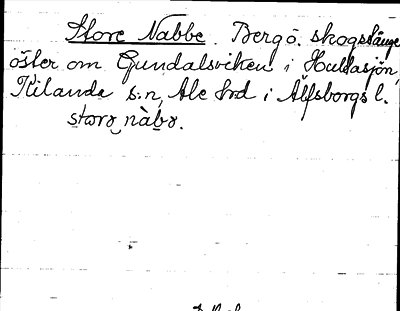 Store Nabbe. Bergö. skogstånge
öster om Gundalsviken i Hultasjön,
Kilanda s:n, Ale hrd i Älfsborgs l.
storə nàbə.